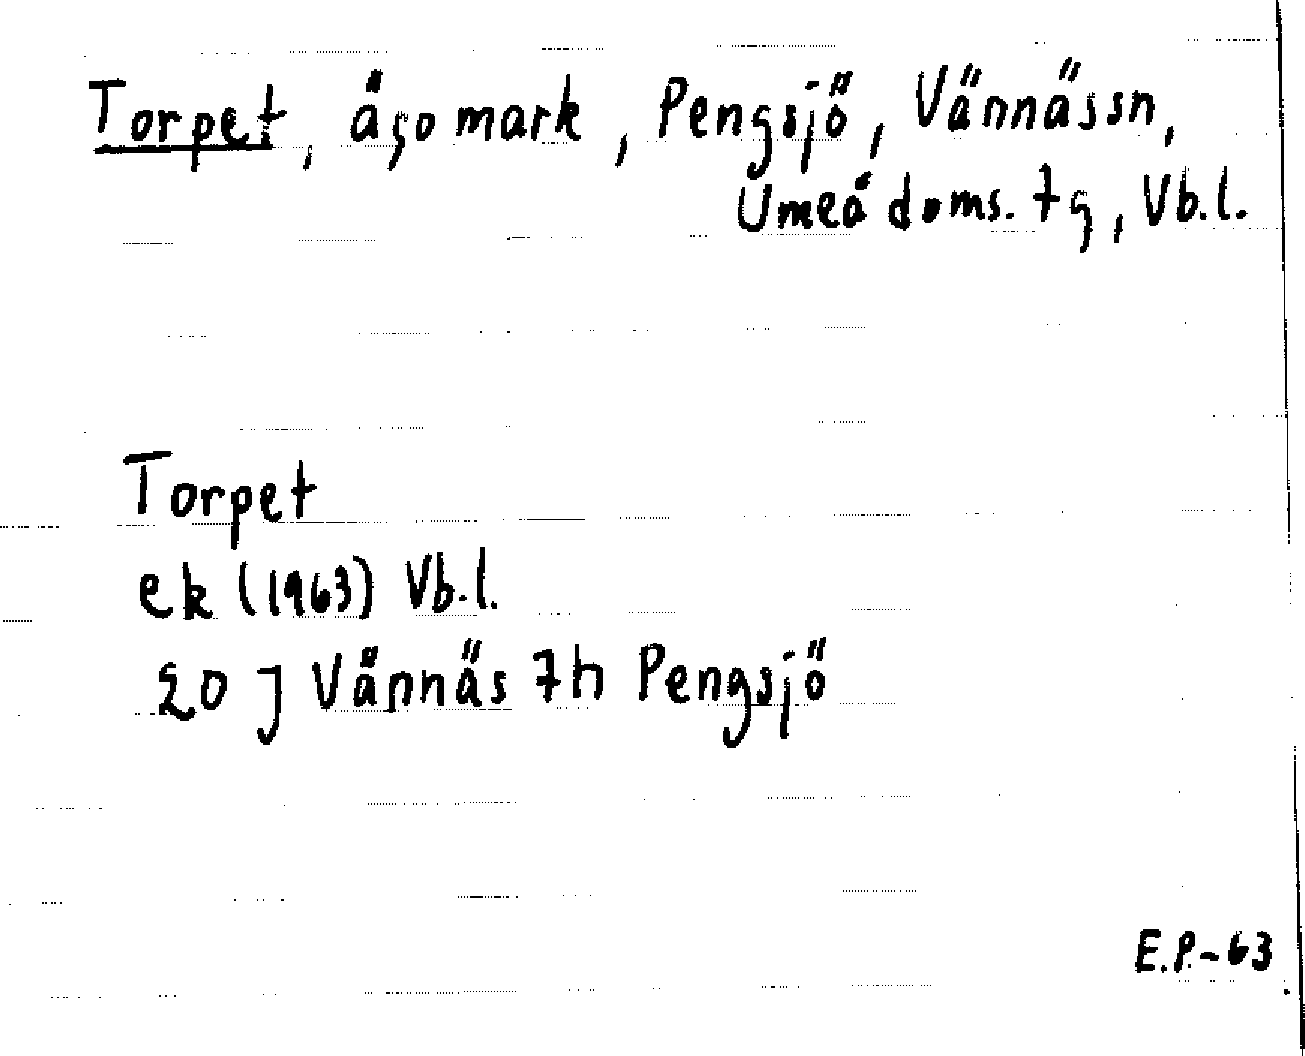 Torpet, ägomark, Pengsjö, Vännässn,
Umeå doms. tg, Vb.l.
Torpet
ek (1963) Vb.l.
20 J Vännäs 7h Pengsjö
E.P.-63